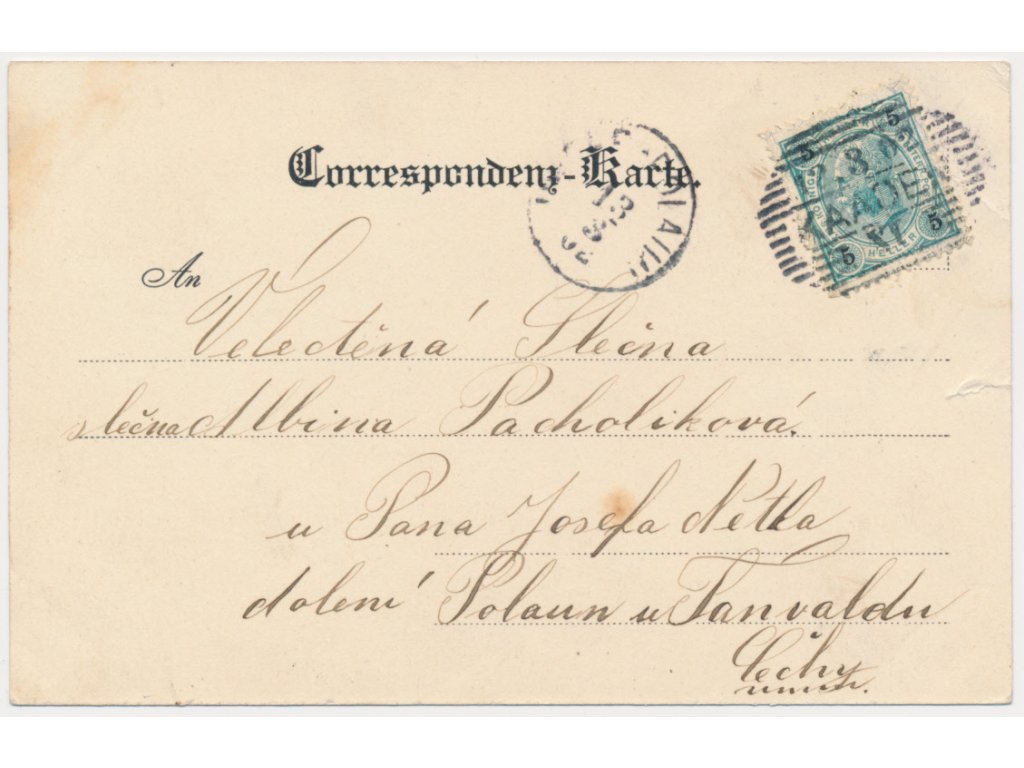 Correspondenz-Karte.
An
Velectěná Slečna
slečna Albina Pacholiková.
u Pana Josefa Nětka
dolení Polaun u Tanvaldu
Čechy
5 5
5 HELLER 5